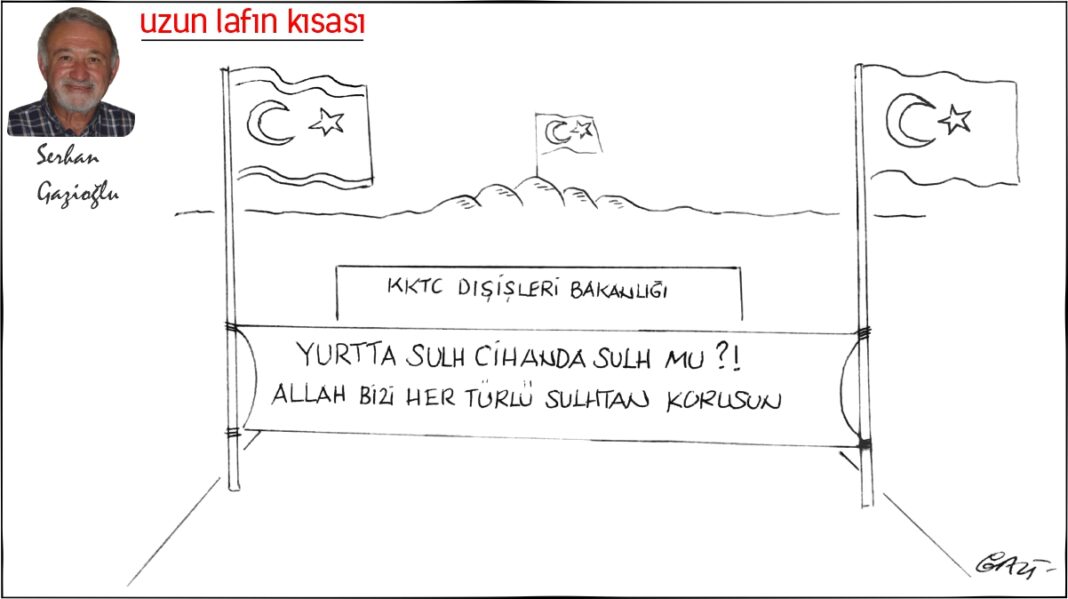 uzun lafın kısası
Serhan
Gazioğlu
KKTC DIŞİŞLERİ BAKANLIĞI
YURTTA SULH CİHANDA SULH MU ?!
ALLAH BİZİ HER TÜRLÜ SULHTAN KORUSUN
GAZİ